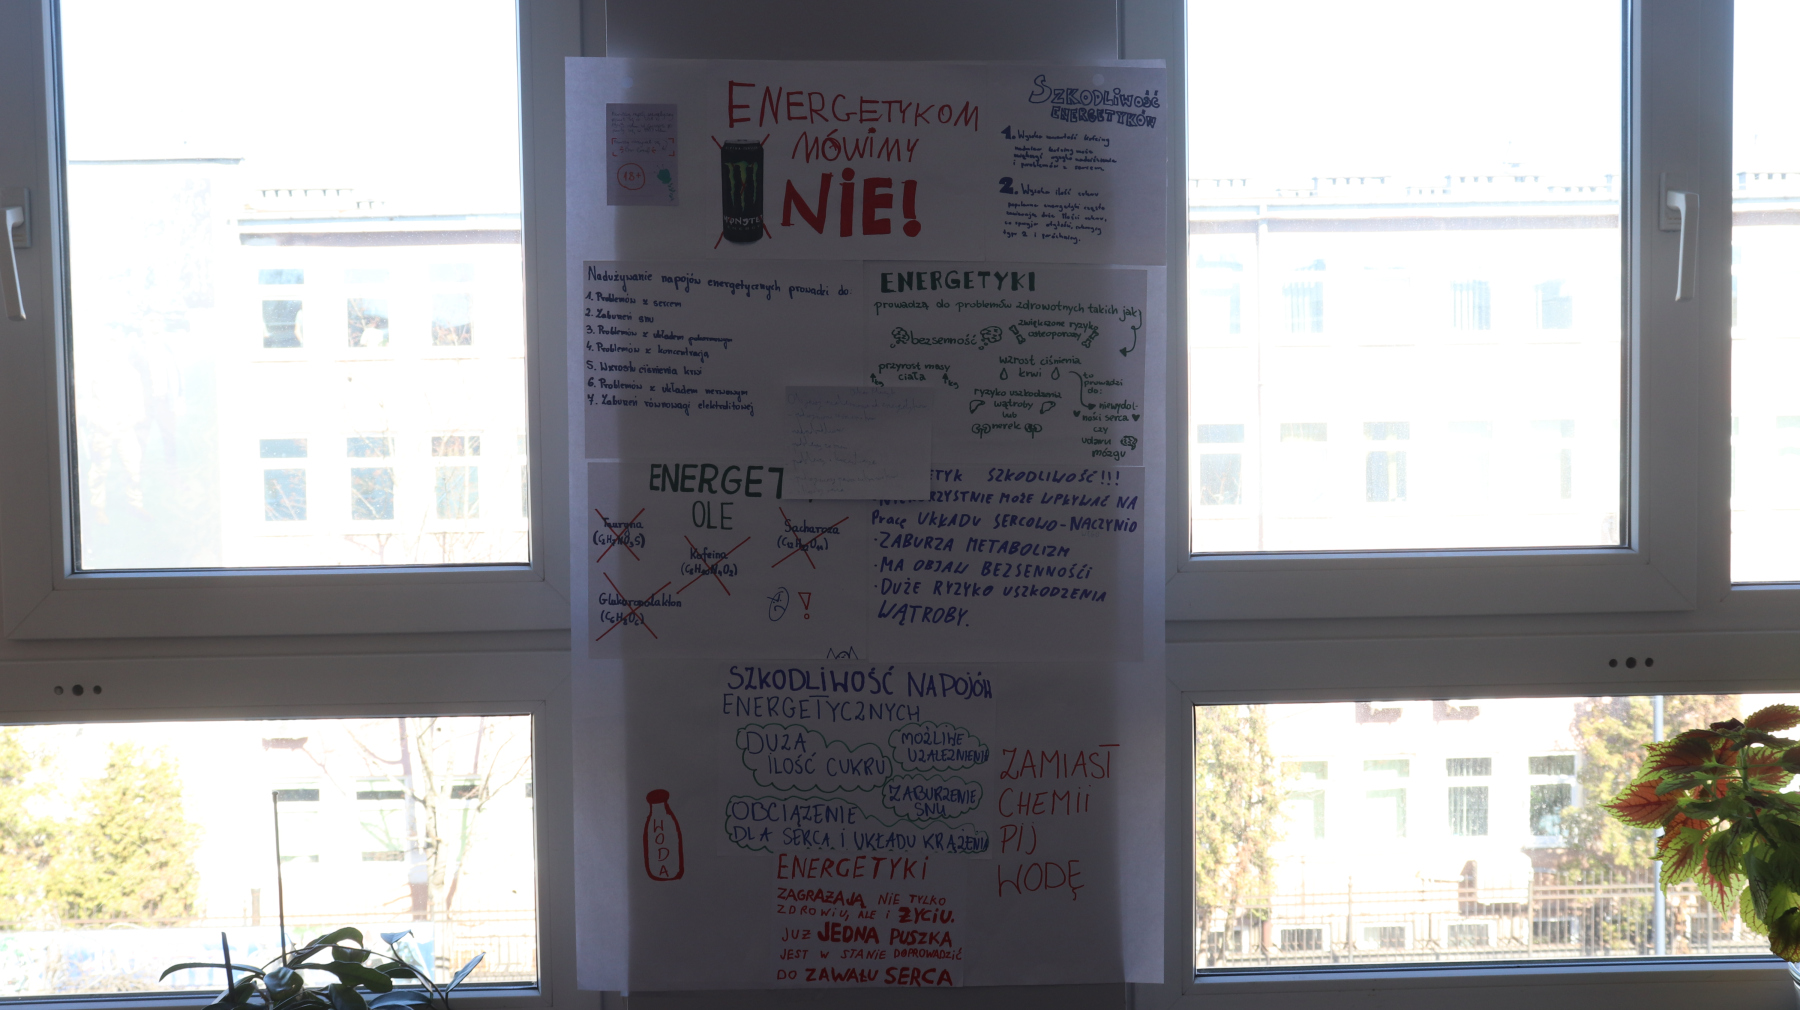 ENERGETYKOM
MÓWIMY
NIE!
18+
SZKODLIWOŚĆ
ENERGETYKÓW
1. Wysoka zawartość kofeiny
nadmiar kofeiny może
i problemów z sercem
2. Wysoka ilość cukru
popularne energetyki często
zawierają duże ilości cukru,
co sprzyja otyłości, cukrzycy
typu 2 i próchnicy.
Nadużywanie napojów energetycznych prowadzi do:
1. Problemów z sercem
2. Zaburzeń snu
3. Problemów z układem pokarmowym
4. Problemów z koncentracją
5. Wzrostu ciśnienia krwi
6. Problemów z układem nerwowym
7. Zaburzeń równowagi elektrolitowej
ENERGETYKI
prowadzą do problemów zdrowotnych takich jak
bezsenność
zwiększone ryzyko
osteoporozy
przyrost masy
ciała
kg
kg
wzrost ciśnienia
krwi
to
prowadzi
do:
niewydol-
ności serca
czy
udaru
mózgu
ryzyko uszkodzenia
wątroby
lub
nerek
ENERGET
OLE
Tauryna
(C₂H₇NO₃S)
Kofeina
(C₈H₁₀N₄O₂)
Sacharoza
(C₁₂H₂₂O₁₁)
Glukuronolakton
(C₆H₈O₆)
!
ETYK SZKODLIWOŚĆ!!!
RZYSTNIE MOŻE WPŁYWAĆ NA
Pracę UKŁADU SERCOWO-NACZYNIO
· ZABURZA METABOLIZM
· MA OBJAW BEZSENNOŚĆI
· DUŻE RYZYKO USZKODZENIA
WĄTROBY.
SZKODLIWOŚĆ NAPOJÓW
ENERGETYCZNYCH
DUŻA
ILOŚĆ CUKRU
MOŻLIWE
UZALEŻNIENIE
ZABURZENIE
SNU
OBCIĄŻENIE
DLA SERCA I UKŁADU KRĄŻENIA
WODA
ZAMIAST
CHEMII
PIJ
WODĘ
ENERGETYKI
ZAGRAŻAJĄ NIE TYLKO
ZDROWIU, ALE I ŻYCIU.
JUŻ JEDNA PUSZKA
JEST W STANIE DOPROWADZIĆ
DO ZAWAŁU SERCA